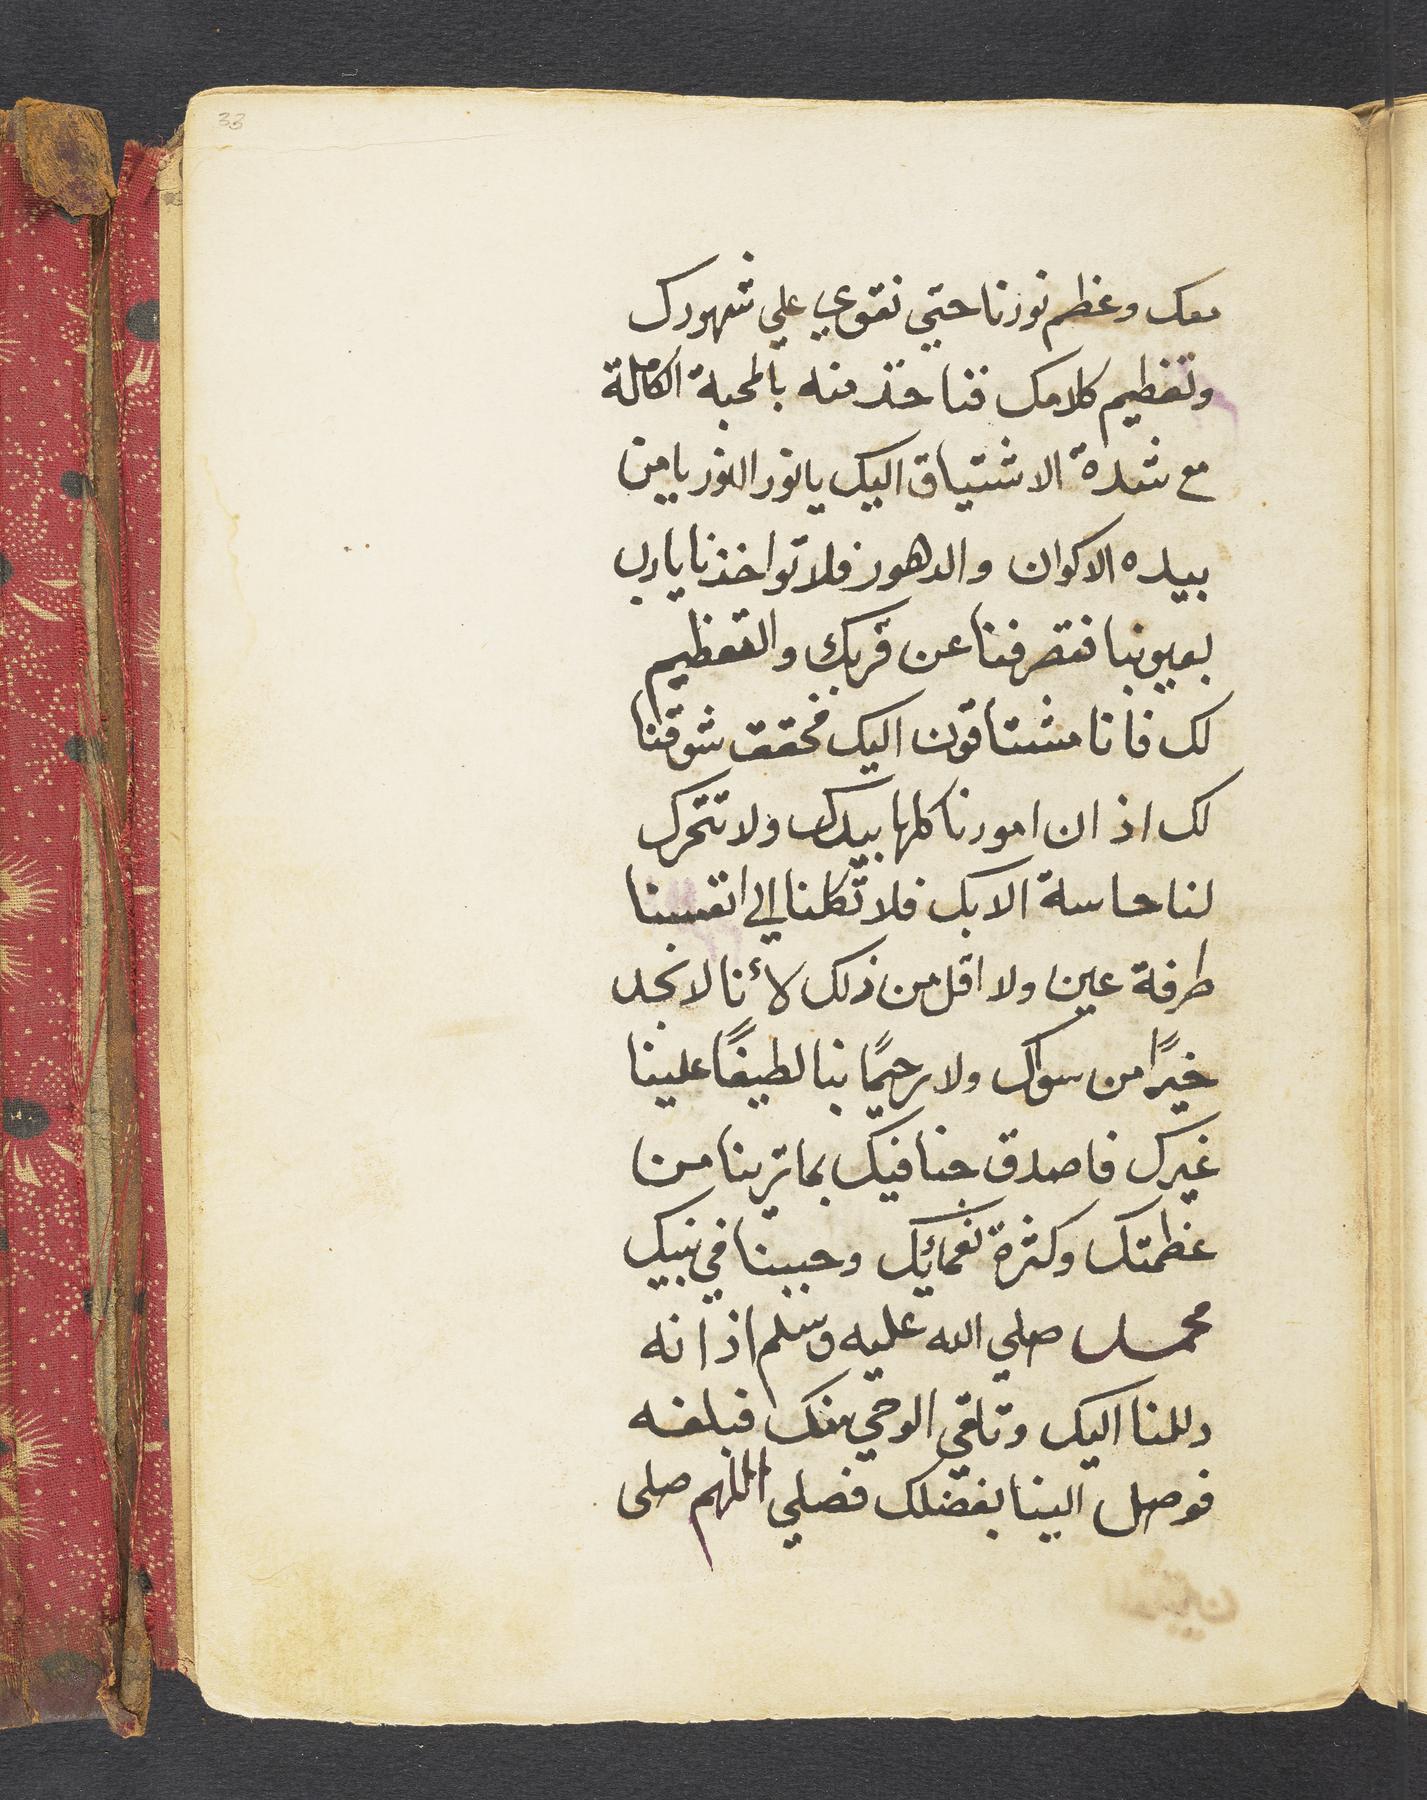 33
معك وعظم نورنا حتي نقوي علي شهودك
وتعظيم كلامك فنا خذ منه بالمحبة الكاملة
مع شدة الاشتياق اليك يا نور النور يا من
بيده الاكوان والدهور فلا تواخذنا يارب
بعيوبنا فتصرفنا عن قربك والتعظيم
لك فانا مشتاقون اليك فحقق شوقنا
لك اذ ان امورنا كلها بيدك ولا تتحرك
لنا حاسة الا بك فلا تكلنا الي انفسنا
طرفة عين ولا اقل من ذلك لأنا لا نجد
خيرًا من سواك ولا رحيمًا بنا لطيفًا علينا
غيرك فاصدق حبنا فيك بما تربنا من
عظمتك وكثرة نعمائك وحببنا في نبيك
محمد صلي الله عليه وسلم اذ انه
دللنا اليك وتلقي الوحي منك فبلغه
فوصل الينا بفضلك فصلي اللهم صلى